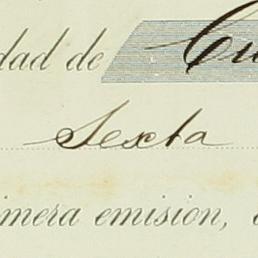 dad de Cu
Sexta
imera emisión,